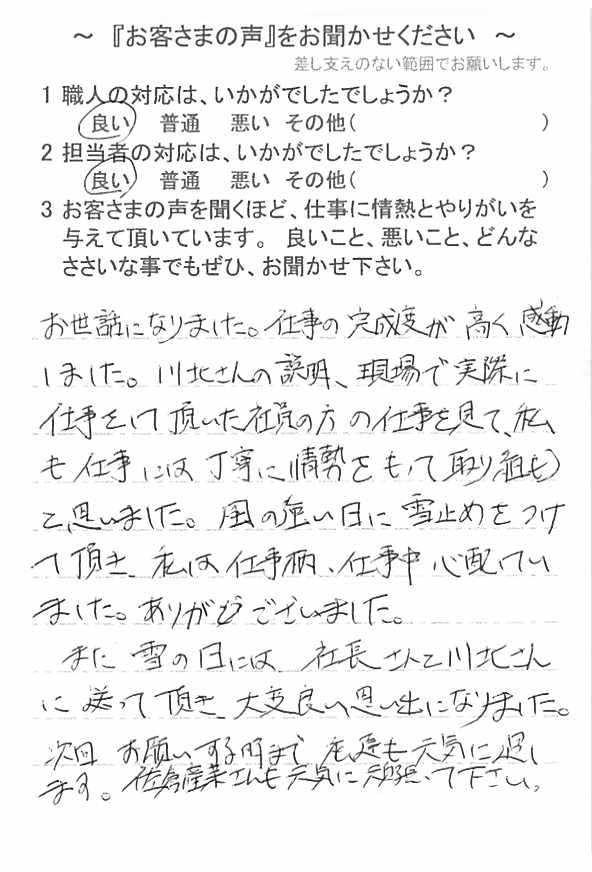 ～ 『お客さまの声』をお聞かせください ～
差し支えのない範囲でお願いします。
1 職人の対応は、いかがでしたでしょうか？
良い 普通 悪い その他( )
2 担当者の対応は、いかがでしたでしょうか？
良い 普通 悪い その他( )
3 お客さまの声を聞くほど、仕事に情熱とやりがいを
与えて頂いています。 良いこと、悪いこと、どんな
ささいな事でもぜひ、お聞かせ下さい。
お世話になりました。仕事の完成度が高く感動
しました。川北さんの説明、現場で実際に
仕事をして頂いた社員の方の仕事を見て、私
も仕事には丁寧に情勢をもって取り組もう
と思いました。風の強い日に雪止めをつけ
て頂き、私は仕事柄、仕事中心配してい
ました。ありがとうございました。
また雪の日には、社長さんと川北さん
に送って頂き、大変良い思い出になりました。
次回お願いする時まで私達も元気に過し
ます。佐倉産業さんも元気に頑張って下さい。